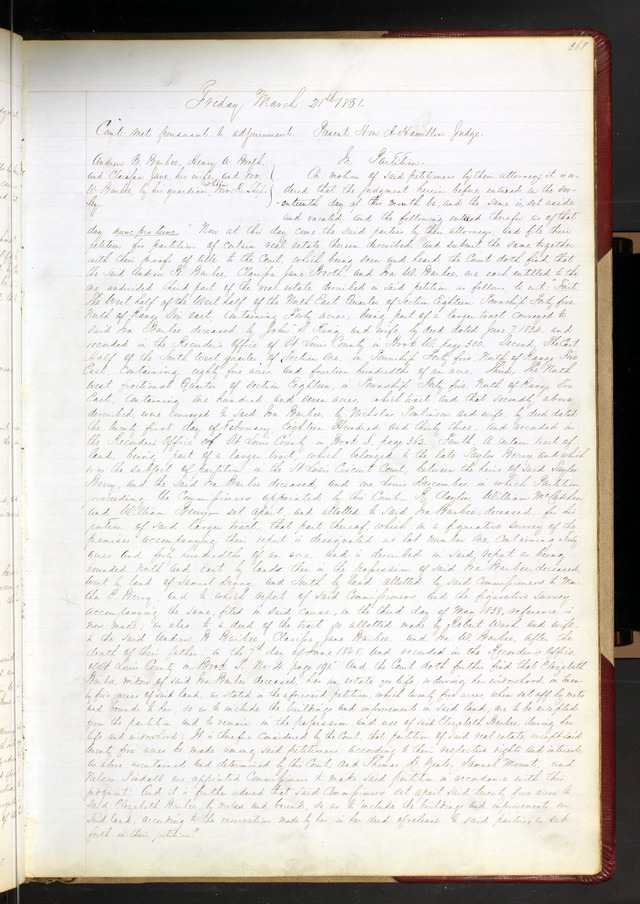 368
Friday March 21st 1851.
Court met pursuant to adjournment Present Hon A Hamilton Judge.
Andrew R. Harlee, Henry A. Hough
and Clarissa Jane, his wife, and Ira
W. Harlee, by his guardian
In Partition.
On motion of said petitioners by their attorney, it is or-
dered that the judgment herein before entered on the sev-
enteenth day of this month be, and the same is set aside
and vacated, and the following entered therefor as of that
day nunc pro tunc. " Now at this day come the said parties by their attorneys, and file their
petition for partition of certain real estate therein described, and submit the same together
with their proofs of title to the Court, which being seen and heard, the Court doth find that
the said Andrew R. Harlee, Clarissa Jane and Ira W. Harlee, are each entitled to the
one undivided third part of the real estate described in said petition as follows, to wit: First,
The West half of the West half of the North East Quarter of Section Eighteen, Township Forty five,
North of Range Six east, Containing Forty acres, being part of a larger tract conveyed to
said Ira Harlee deceased by John King and wife, by deed dated June 7, 1834, and
recorded in the Recorder's Office of St Louis County in Book page 300. Second, The East
half of the South West quarter of Section One, in Township Forty five, North of Range Five
East Containing eighty five acres and fourteen hundredths of an acre. Third, The North
west fractional Quarter of Section Eighteen, in Township Forty five, North of Range Six
East, containing one hundred and seven acres, which tract and that secondly above
described, were conveyed to said Ira Harlee, by Nicholas and wife, by deed dated
the twenty first day of February Eighteen Hundred and thirty three, and recorded in
the Recorder's Office of St Louis County in Book S, page 362. Fourth A certain tract of
land, being part of a larger tract, which belonged to the late Taylor Berry and which
was the subject of partition, in the St Louis Circuit Court, between the heirs of said Taylor
Berry, and the said Ira Harlee deceased, and one Louis in which Partition
proceeding the Commissioners appointed by the Court, R. Clayton, William
and William set apart, and allotted to said Ira Harlee, deceased, for his
portion of said larger tract, that part thereof which in a figurative survey of the
premises accompanying their report is designated as lot number One Containing Sixty
acres and forty hundredths of an acre, and is described in said report as being
bounded North and east by lands then in the possession of said Ira Harlee, deceased,
west by land of Samuel and South by land allotted by said Commissioners to Mar-
tha E. Berry, and to which report of said Commissioners and the figurative survey
accompanying the same, filed in said cause, on the third day of May 1838, reference is
now made; as also to a deed of the tract so allotted made by Robert Wash and wife,
to the said Andrew R. Harlee, Clarissa Jane Harlee, and Ira W. Harlee, after the
death of their father, on the 7th day of June 1848, and recorded in the Recorder's office
of St Louis County in Book No 4, page 191. And the Court doth further find that Elizabeth
Harlee, widow of said Ira Harlee deceased, has an estate for life, or during her widowhood in twen-
ty five acres of said land, as stated in the aforesaid petition, which twenty five acres, when set off by metes
and bounds to her, so as to include the buildings and improvements on said land, are to be excepted
from the partition and to remain in the possession and use of said Elizabeth Harlee, during her
life and widowhood; It is therefore considered by the Court, that partition of said real estate, except said
twenty five acres be made among said petitioners according to their respective rights and interests
as above ascertained and determined by the Court, and Thomas Samuel Mount, and
Nelson are appointed Commissioners to make said partition in accordance with this
judgment. And it is further ordered that said Commissioners set apart said twenty five acres to
said Elizabeth Harlee, by metes and bounds, so as to include the buildings and improvements on
said land, according to the reservations made by her, in her deed of release to said parties as set
forth in their petition."